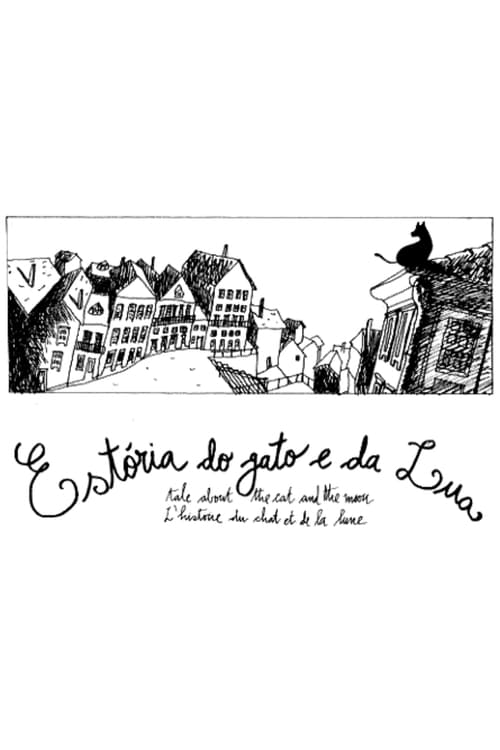 Estória do gato e da Lua
tale about the cat and the moon
L'histoire du chat et de la lune